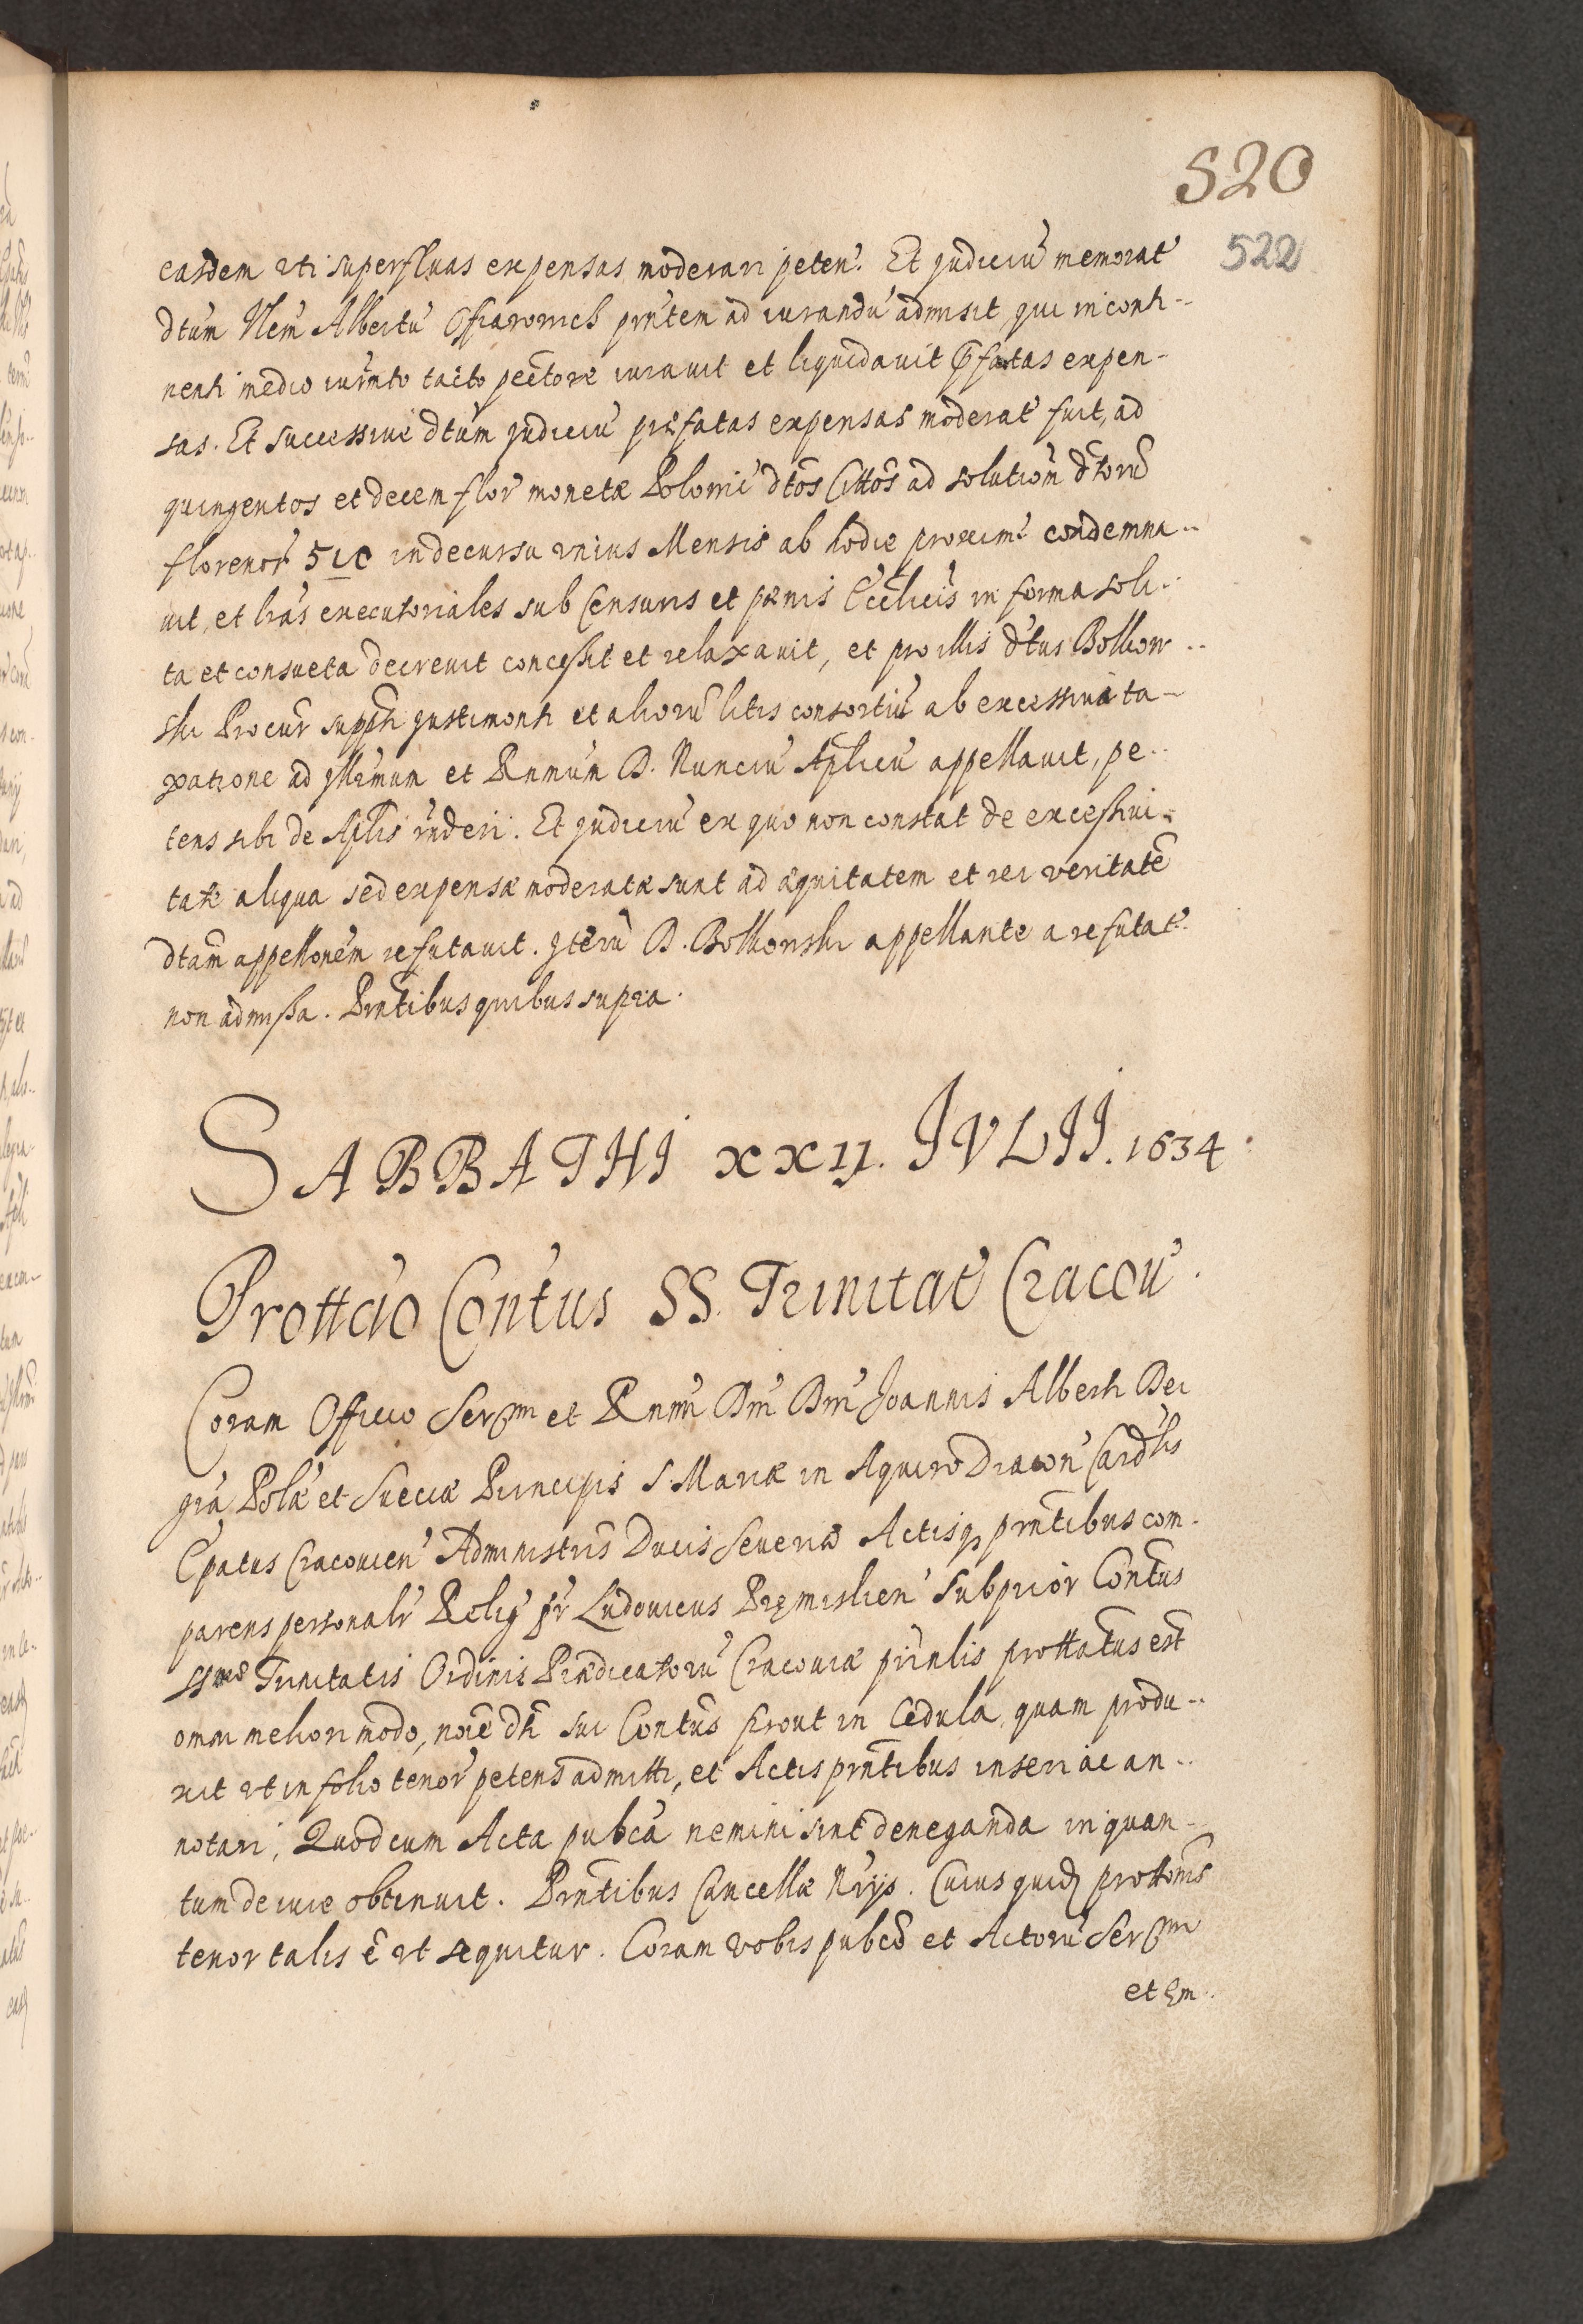 520
522
easdem uti superfluas expensas moderari peten. Et Judiciu memorat
dtum Nem Albertu pntem ad iurandu admisit, qui inconti-
nenti medio iurmto tacto pectore iurauit et liquidauit pfatas expen-
sas. Et successive dtum Judiciu præfatas expensas moderat fuit, ad
quingentos et decem flor monetæ Polonic dtos Cittos ad solutiom dtoru
florenor 510 in decursu unius Mensis ab hodie proxime condemna-
uit, et lras executoriales sub Censuris et pænis Ecclicis in forma soli-
ta et consueta decreuit concessit et relaxauit, et pro illis dtus Bolkow-
ski Procur suppti Justimonti et alioru litis consortiu ab excessiva ta-
xatione ad Illmum et Rnmum D. Nunciu Aplicu appellauit, pe-
tens sibi de Aplis rnderi. Et Judiciu ex quo non constat de excessiui-
tate aliqua sed expensæ moderatæ sunt ad æquitatem et rei veritate
dtam appellonem refutauit. Iteru D. Bolkowski appellante a refutat
non admissa. Pntibus quibus supra.
SABBATHI XXII. IVLII. 1634.
Prottcio Contus SS. Trinitat Cracou.
Coram Officio Serenm et Rnmi Dni Dni Joannis Alberti Dei
gra Polæ et Sueciæ Principis S. Mariæ in Aquiro Diacon Cardlis
Epatus Cracouien Administris Ducis Seueriæ Actisq pntibus com-
parens personalr Relig fr Ludouicus Præmislien Subprior Contus
SSmæ Trinitatis Ordinis Prædicatoru Cracouiæ prinlis prottatus est
omni meliori modo, noie dti sui Contus prout in Cedula, quam produ-
xit ut in folio tenor petens admitti, et Actis pntibus inseri ac an-
notari, Quod cum Acta pubca nemini sint deneganda in quan-
tum de iure obtinuit. Pntibus Cancellæ Nrijs. Cuius quid prottonis
tenor talis e ut sequitur. Coram vobis pubco et Actoru Serenm
et Em.